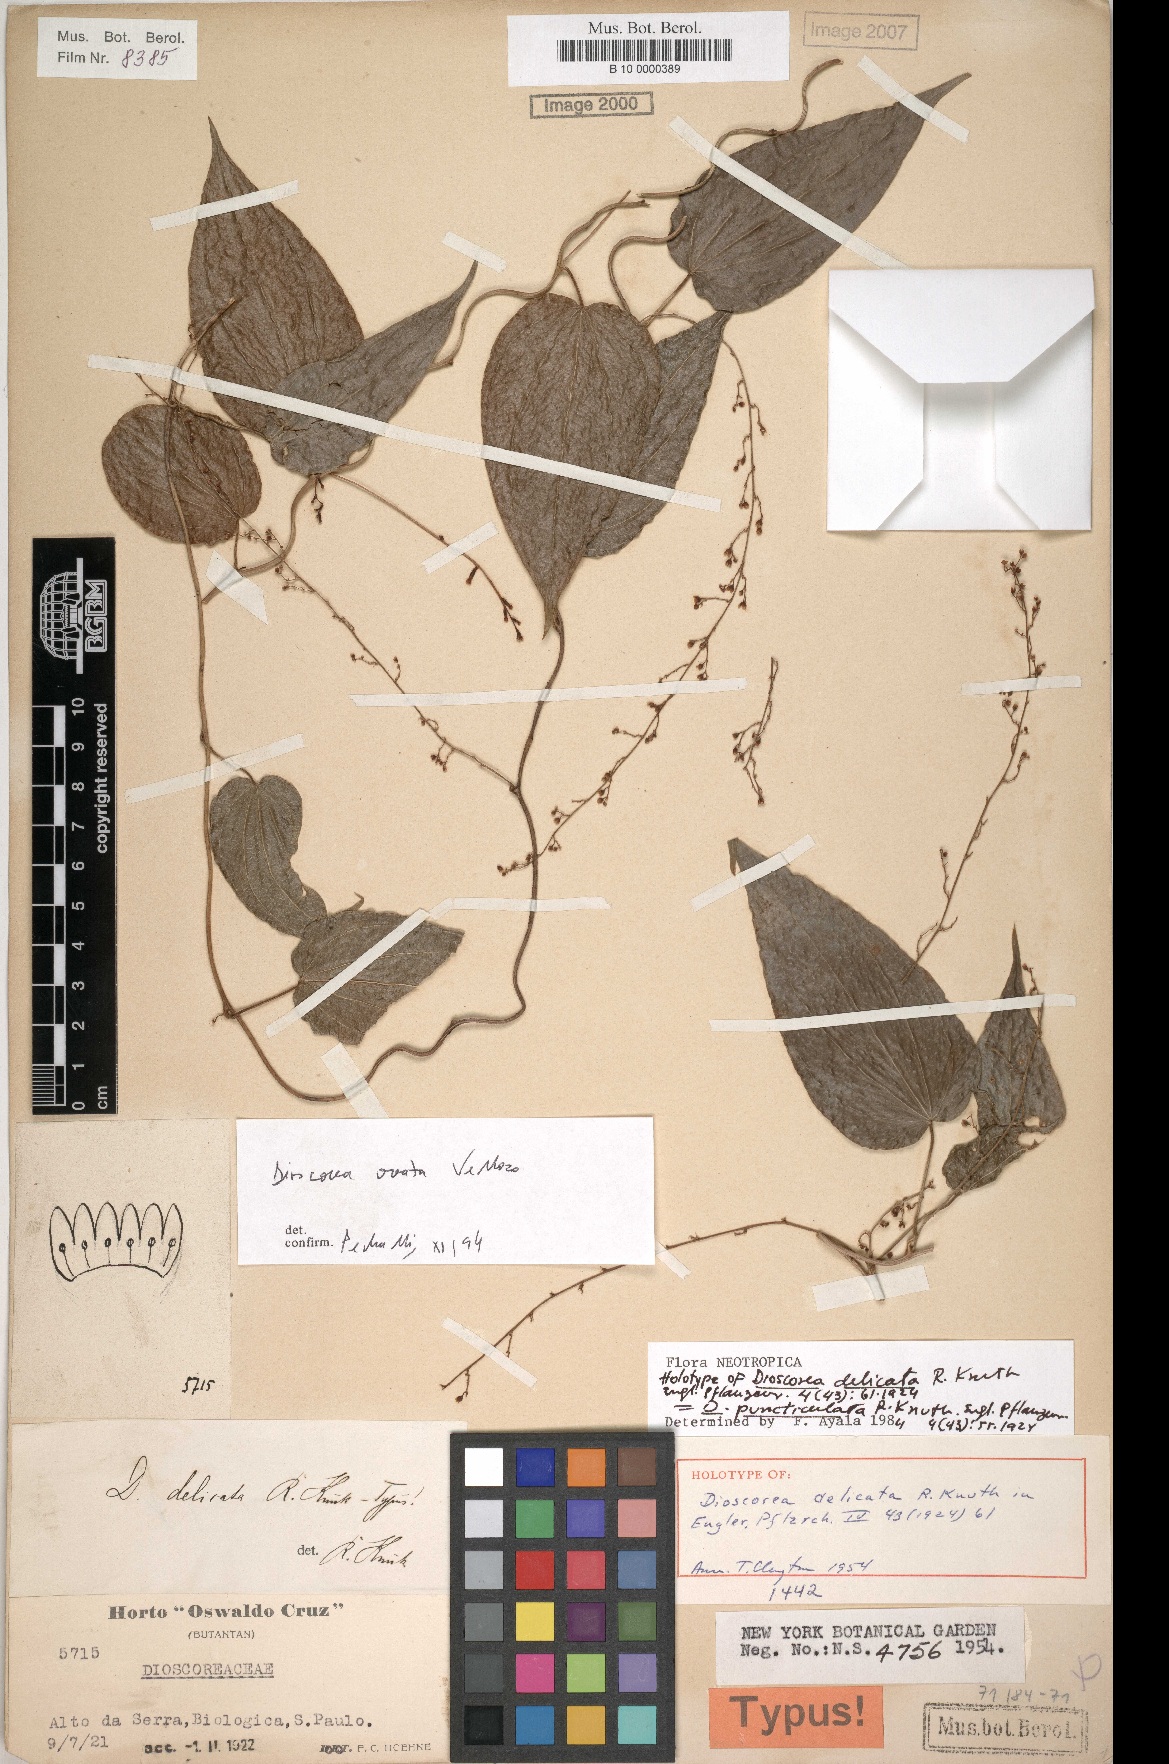 Mus. Bot. Berol.
Film Nr. 8385
Mus. Bot. Berol.
B 10 0000389
Image 2000
Image 2007
BGBM
10
9
8
7
6
5
4
3
2
1
0
cm
copyright reserved
Dioscorea ovata Vellozo
det.
confirm. XI/94
5715
Flora NEOTROPICA
Holotype of Dioscorea delicata R. Knuth
Engl. Pflanzenr. 4(43): 61. 1924
= D. puncticulata R. Knuth. Engl. Pflanzenr
Determined by F. Ayala 1984 4(43): 55. 1924
D. delicata R. Knuth - Typus!
det. R. Knuth
HOLOTYPE OF:
Dioscorea delicata R. Knuth in
Engler, Pflzrch. IV 43 (1924) 61
Ann. T. Clayton 1954
1442
Horto "Oswaldo Cruz"
(BUTANTAN)
5715
DIOSCOREACEAE
Alto da Serra, Biologica, S. Paulo.
9/7/21 acc. -1. II. 1922 F. C. HOEHNE
NEW YORK BOTANICAL GARDEN
Neg. No.: N.S. 4756 1954.
Typus!
71 184-71
Mus. bot. Berol.